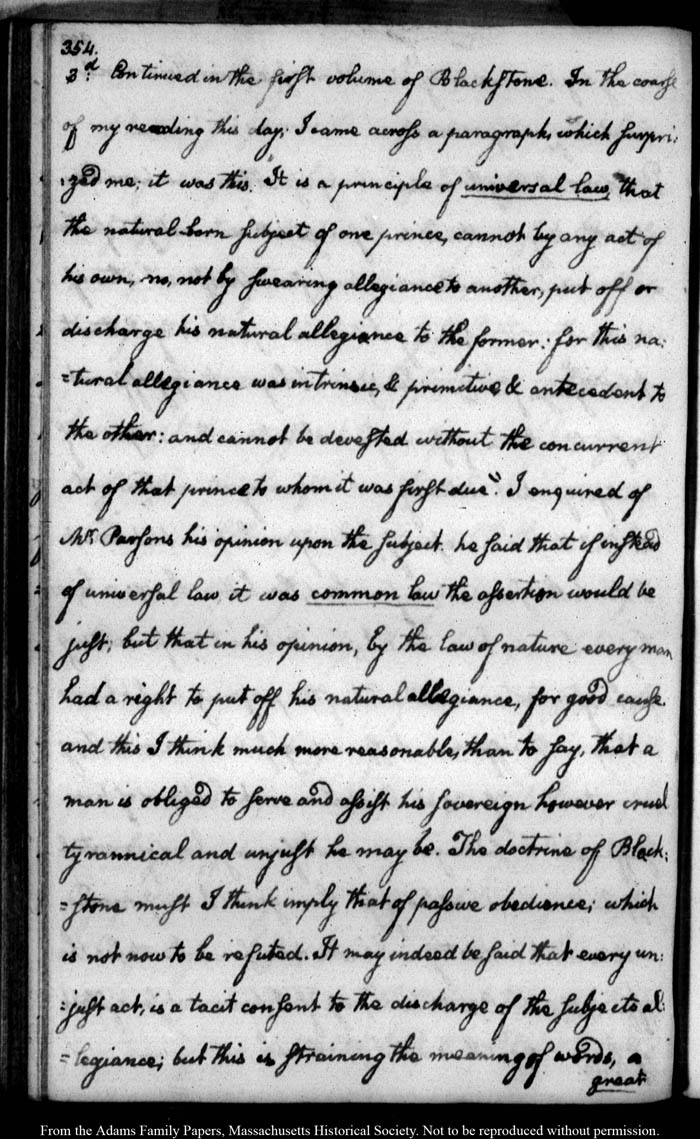 354.
3d. Continued in the first volume of Blackstone. In the course
of my reading this day; I came across a paragraph, which surpri:
:zed me; it was this. "It is a principle of universal law, that
the natural-born subject of one prince, cannot by any act of
his own, no, not by swearing allegiance to another, put off or
discharge his natural allegiance to the former: for this na:
=tural allegiance was intrinsic, & primitive, & antecedent to
the other: and cannot be devested without the concurrent
act of that prince to whom it was first due". I enquired of
Mr. Parsons his opinion upon the subject. he said that if instead
of universal law it was common law the assertion would be
just; but that in his opinion, by the law of nature every man
had a right to put off his natural allegiance, for good cause.
and this I think much more reasonable, than to say, that a
man is obliged to serve and assist his sovereign however cruel
tyrannical and unjust he may be. The doctrine of Black:
=stone must I think imply that of passive obedience; which
is not now to be refuted. It may indeed be said that every un:
:just act, is a tacit consent to the discharge of the subjects al:
=legiance; but this is straining the meaning of words, a
great
From the Adams Family Papers, Massachusetts Historical Society. Not to be reproduced without permission.